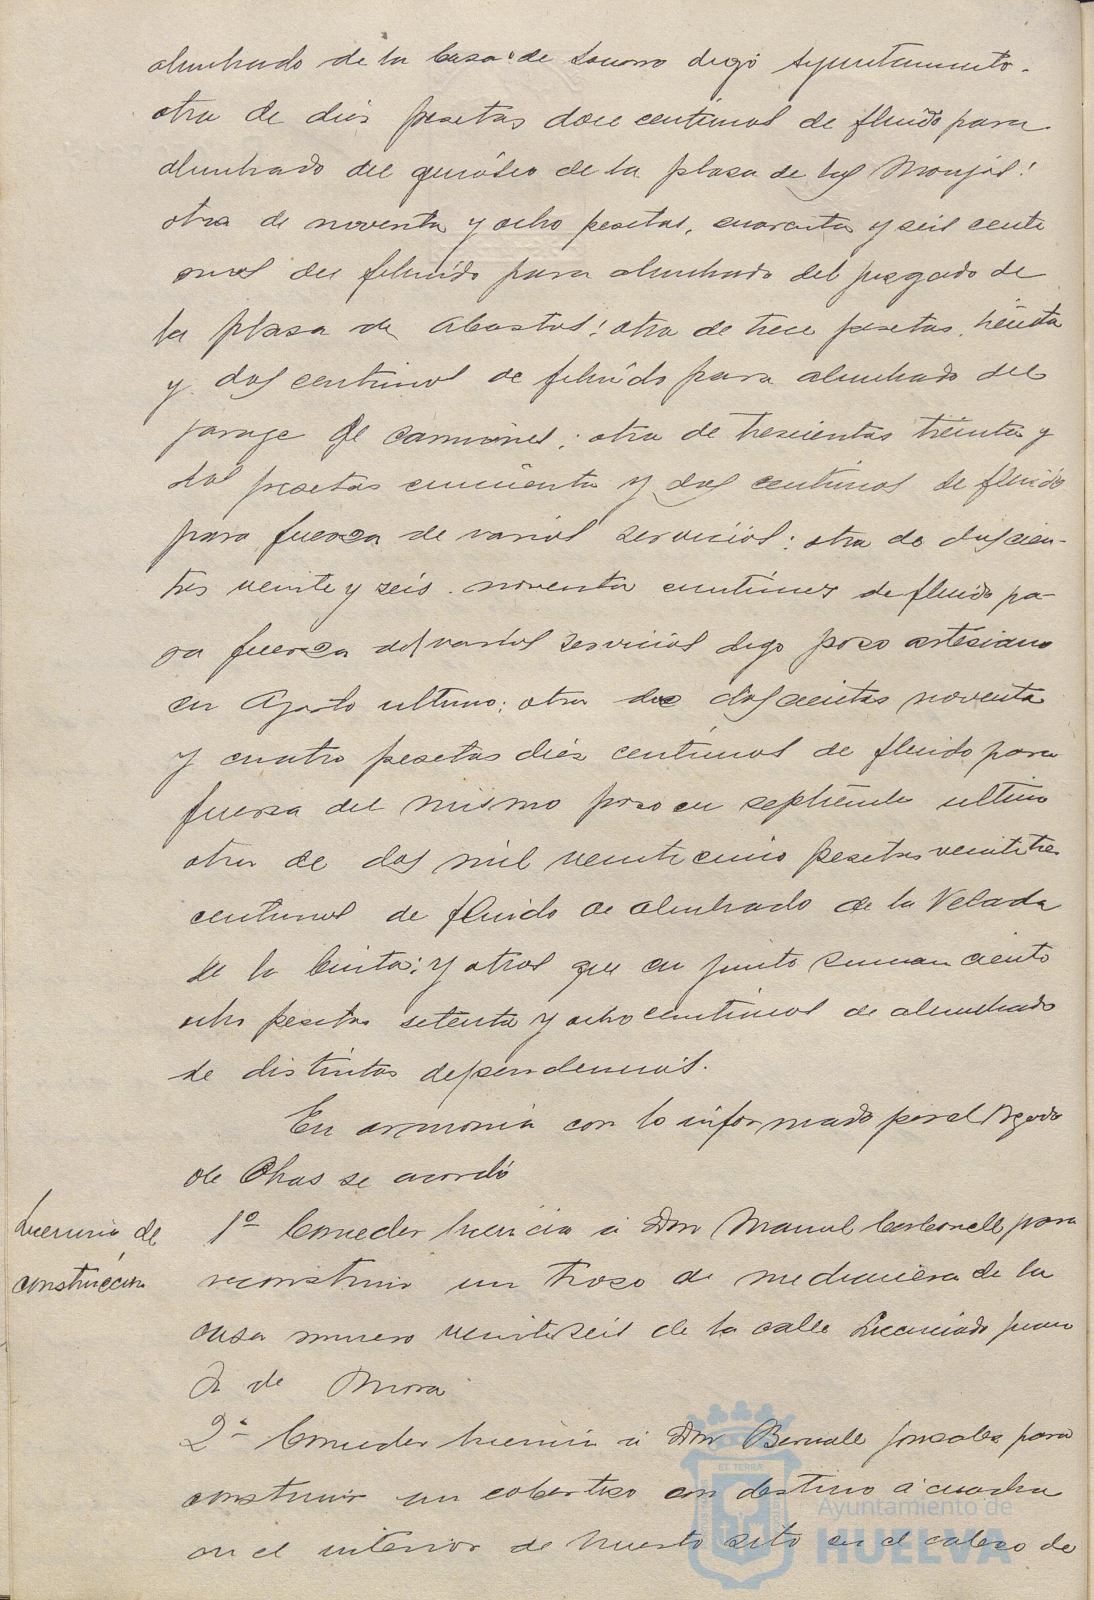 alumbrado de la Casa de Socorro digo Ayuntamiento.
otra de diez pesetas doce centimos de fluido para
alumbrado del quiosco de la plaza de las Monjas:
otra de noventa y ocho pesetas, cuarenta y seis centi
mos de fluido para alumbrado del juzgado de
la plaza de Abastos: otra de trece pesetas, treinta
y dos centimos de fluido para alumbrado del
garage de camiones; otra de trescientas treinta y
dos pesetas cincuenta y dos centimos de fluido
para fuerza de varios servicios: otra de doscien-
tas veinte y seis noventa centimos de fluido pa-
ra fuerza de varios servicios digo pozo artesiano
en Agosto ultimo; otra de doscientas noventa
y cuatro pesetas diez centimos de fluido para
fuerza del mismo pozo en septiembre ultimo
otra de dos mil veinticinco pesetas veintitres
centimos de fluido de alumbrado de la Velada
de la Cinta; y otras que en junto suman ciento
ocho pesetas setenta y ocho centimos de alumbrado
de distintas dependencias.
En armonia con lo informado por el Negdo
de Obras se acordó
Licencia de
construccion
1º Conceder licencia á Don Manuel Carbonell para
reconstruir un trozo de medianera de la
casa numero veintiseis de la calle Licenciado Juan
A. de Mora
2ª Conceder licencia á Don Gonzalez para
construir un cobertizo con destino á cuadra
en el interior de huerto sito en el cabezo de
ET TERRA
Ayuntamiento de
HUELVA